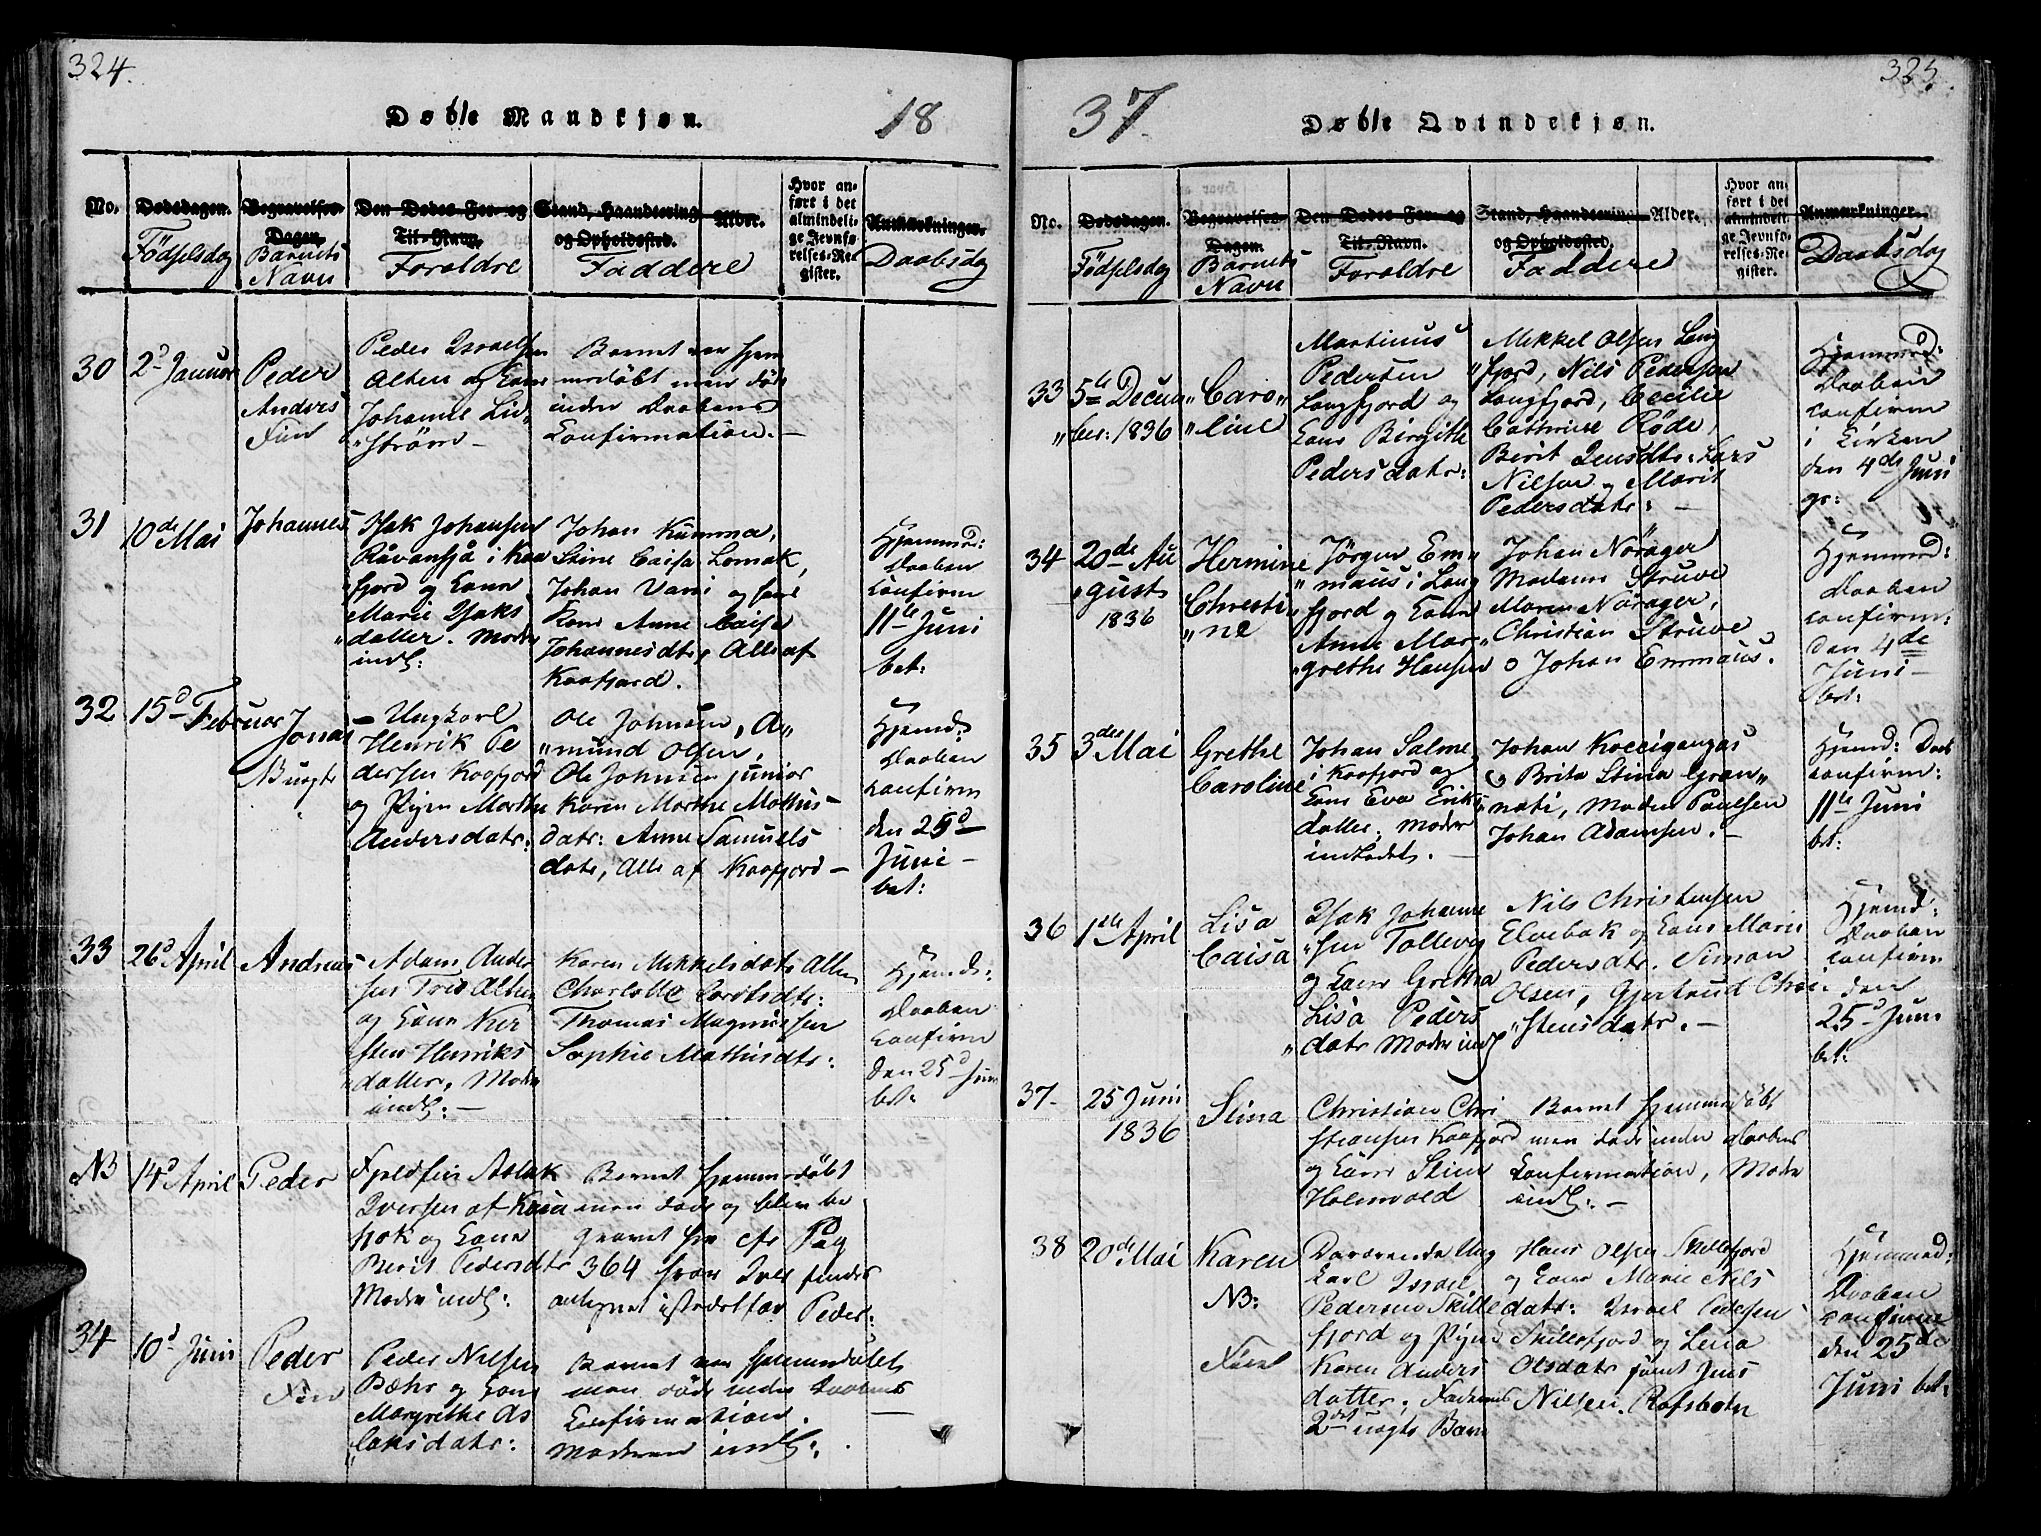 324.
Døbte Mandkjøn.
18
No.
Dødsdagen.
Födselsdag
Begravelses-
Dagen,
Barnets
Navn
Den Dødes For- og
Til-Navn,
Foraldre
Stand, Haandtering
og Opholdssted.
Faddere
Alder.
Hvor an-
ført i det
almindeli-
ge Jevnfø-
relses-Re-
gister.
Anmærkninger.
Daabsdag
30
2d Januar
Peder
Anders
Fin
Peder Israelsen
Alten og Kone
Johanne Lid
"strøm -
Barnet var hjem
medöbt men död
inden Daabens
Confirmation. -
31
10de Mai
Johannes
Isak Johansen
Ravansjå i Kaa
fjord og Kone
Marie Isaks
datter. Moder
indl:
Johan Kumma,
Stine Caisa Lomak,
Johan Vari og hans
Kone Anne Caisa
Johannesdtr, Alle af
Kaafjord.
Hjemmed:
Daaben
confirm
11te Juni
bet:
32
15d Februar
Jonas
N: uægte
- Ungkarl
Henrik Pe
dersen Kaafjord
og Pigen Marthe
Andersdatr:
Ole Johnsen, A"
"mund Olsen,
Ole Johnsen junior
Karen Marthe Mathis-
datr: Anne Samuels
datr, Alle af Kaafjord -
Hjemd:
Daaben
confirm
den 25d
Juni -
bet:
33
26d April
Andreas
Adam Ander
sen Fred Alten
og Kone Kir
sten Henriks
datter, Moder
indl: -
Karen Mikkelsdatr Alten
Charlotte Lartsdtr:
Thomas Magnussen
Sophie Mathisdtr:
Hjemd:
Daaben
confirm
den 25d Juni
bet:
NB
14d April
Peder
Fjeldfin Aslak
Iversen af Kau
tok og Kone
Berit Pedersdtr
Moder indl:
Barnet hjemmedöbt
men döde og blev be
gravet her cfr Pag
364 hvor Iver findes
antegnet istedetfor Peder:
34
10d Juni
Peder
Fin
Peder Nilsen
Bæhr og Kone
Margrethe As
"laksdatr:
Barnet var hjemmedöbt
men döde inden Daabens
Confirmation. -
Moderen indl:
325.
37.
Døbte Qvindekjøn.
No.
Dødsdagen.
Födselsdag
Begravelses-
Dagen.
Barnets
Navn
Den Dødes For- og
Til-Navn.
Foraldre
Stand, Haandtering
og Opholdssted.
Faddere
Alder.
Hvor an-
ført i det
almindeli-
ge Jevnfø-
relses-Re-
gister.
Anmærkninger.
Daabsdag
33
5te Decem
"ber: 1836
"Caro"
"line
Martinus
Pedersen
Langfjord og
Kone Birgithe
Pedersdatr:
Mikkel Olsen Lang
"fjord, Nils Pedersen
Langfjord, Cecilie
Cathrine Röde,
Berit Jensdtr: Lars
Nilsen og Marit
Pedersdatr: -
Hjemmed:
Daaben
confirm
i Kirken
den 4de Juni
gr:
34
20de Au
"gust
1836
Hermine
Christi
"ne
Jørgen Em"
"maus i Lang
fjord og Kone
Anne Mar"
"grethe Hansen
Johan Nörager
Madame Struve
Maren Nörager,
Christian Struve
o Johan Emmaus.
Hjemmed:
Daaben
confirm:
den 4de
Juni -
bet:
35
3die Mai
Grethe
Caroline
Johan Salme
i Kaafjord og
Kone Eva Erik
datter. Moder
indladet. -
Johan Koccigangas
og Brita Stina Gran"
nati, Maden Paulsen
Johan Adamsen. -
Hjemd: Daab
confirm:
11te Juni
bet:
36
1ste April
Lisa
Caisa
Isak Johanne
"sen Tallevig
og Kone Gretha
Lisa Peders
"datr Moder indl
Nils Christensen
Elvebak og Kone Marie
Pedersdtr. Simon
Olsen, Gjertrud Chri
"stensdatr. -
Hjemd:
Daaben
confirm
den
25d Juni
bet:
37-
25 Juni
1836
Stina
Christian Chri
stiansen Kaafjord
og Kone Stine
Holmvold
Barnet hjemmedöbt
men döde inden Daabens
Confirmation, Moder
indl: -
38
20de Mai
Karen
NB:
Fin
Daværende Ung
karl Israel
Pedersen Skille
fjord og Pigen
Karen Anders
datter. Faderens
2det uægte Barn
Hans Olsen Skillefjord
og Kone Marie Nils
datr: Israel Pedersen
Skillefjord og Lena
Olsdatr samt Jens
Nilsen. Rafsbotn
Hjemmed:
Daaben
confirm
den 25de
Juni bet: